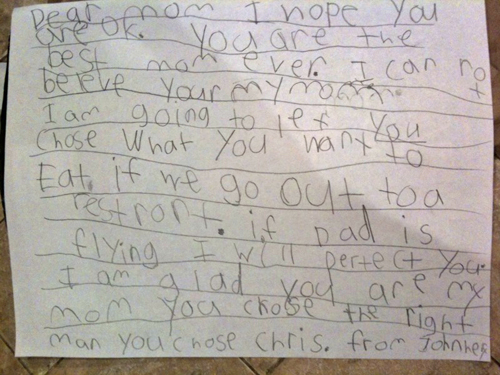 Dear mom I hope you
are ok. you are the
best mom ever. I can not
beleve your my mom.
I am going to let you
chose what you want to
Eat. if we go out to a
restront. if Dad is
flying I will pertect you.
I am glad you are my
mom you chose the right
man you chose Chris. from